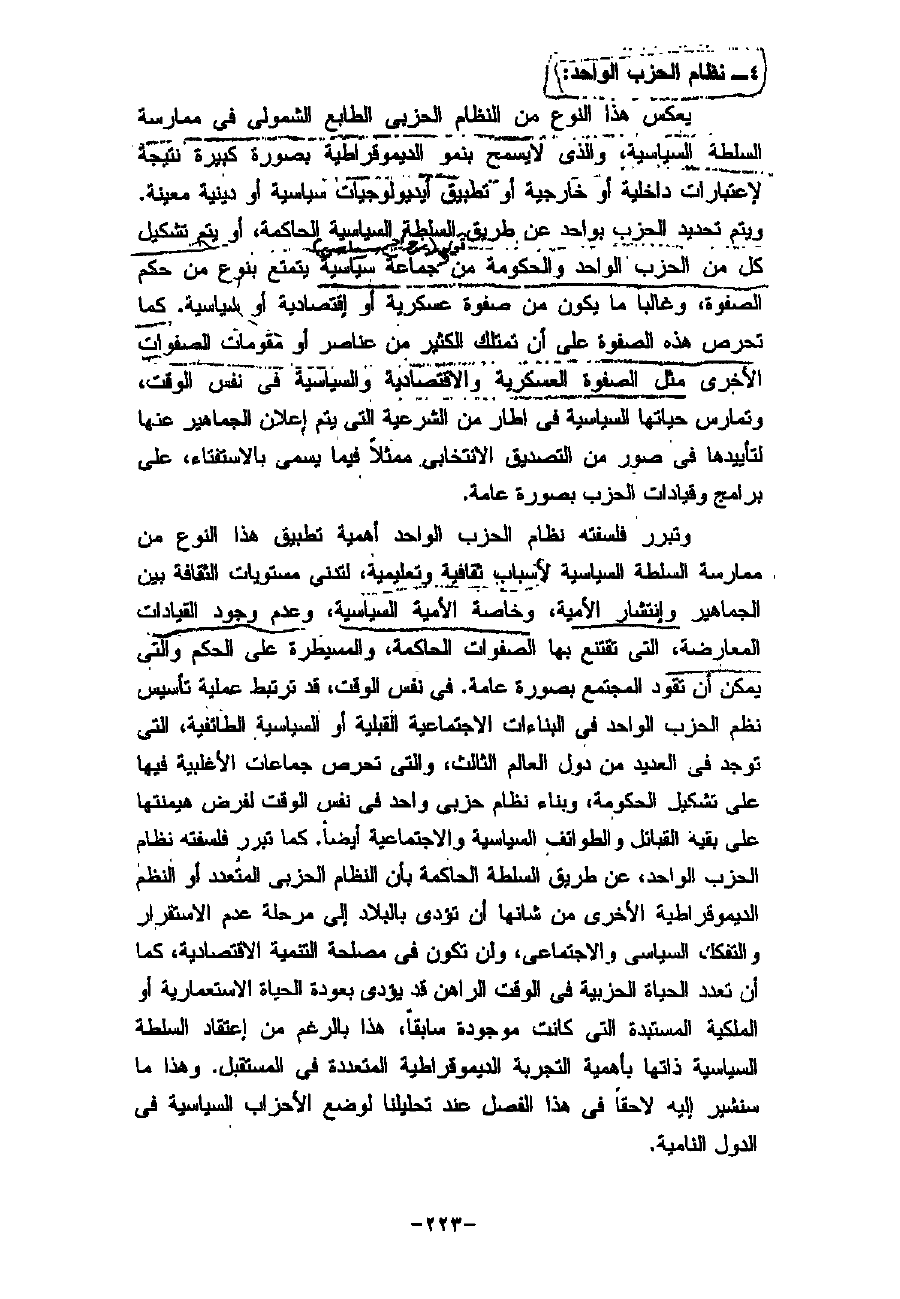 ٤ـ نظام الحزب الواحد:
يعكس هذا النوع من النظام الحزبى الطابع الشمولى فى ممارسة
السلطة السياسية، والذى لايسمح بنمو الديموقراطية بصورة كبيرة نتيجة
لإعتبارات داخلية أو خارجية أو تطبيق أيديولوجيات سياسية أو دينية معينة.
ويتم تحديد الحزب بواحد عن طريق السلطة السياسية الحاكمة، أو يتم تشكيل
كل من الحزب الواحد والحكومة من جماعة سياسية يتمتع بنوع من حكم
الصفوة، وغالبا ما يكون من صفوة عسكرية أو إقتصادية أو سياسية. كما
تحرص هذه الصفوة على أن تمتلك الكثير من عناصر أو مقومات الصفوات
الأخرى مثل الصفوة العسكرية والاقتصادية والسياسية فى نفس الوقت،
وتمارس حياتها السياسية فى اطار من الشرعية التى يتم إعلان الجماهير عنها
لتأييدها فى صور من التصديق الانتخابى ممثلاً فيما يسمى بالاستفتاء، على
برامج وقيادات الحزب بصورة عامة.
وتبرر فلسفته نظام الحزب الواحد أهمية تطبيق هذا النوع من
ممارسة السلطة السياسية لأسباب ثقافية وتعليمية، لتدنى مستويات الثقافة بين
الجماهير وإنتشار الأمية، وخاصة الأمية السياسية، وعدم وجود القيادات
المعارضة، التى تقتنع بها الصفوات الحاكمة، والمسيطرة على الحكم والتى
يمكن أن تقود المجتمع بصورة عامة. فى نفس الوقت، قد ترتبط عملية تأسيس
نظم الحزب الواحد فى البناءات الاجتماعية القبلية أو السياسية الطائفية، التى
توجد فى العديد من دول العالم الثالث، والتى تحرص جماعات الأغلبية فيها
على تشكيل الحكومة، وبناء نظام حزبى واحد فى نفس الوقت لفرض هيمنتها
على بقيه القبائل والطوائف السياسية والاجتماعية أيضاً. كما تبرر فلسفته نظام
الحزب الواحد، عن طريق السلطة الحاكمة بأن النظام الحزبى المتعدد أو النظم
الديموقراطية الأخرى من شانها أن تؤدى بالبلاد إلى مرحلة عدم الاستقرار
والتفكك السياسى والاجتماعى، ولن تكون فى مصلحة التنمية الاقتصادية، كما
أن تعدد الحياة الحزبية فى الوقت الراهن قد يؤدى بعودة الحياة الاستعمارية أو
الملكية المستبدة التى كانت موجودة سابقاً، هذا بالرغم من إعتقاد السلطة
السياسية ذاتها بأهمية التجربة الديموقراطية المتعددة فى المستقبل. وهذا ما
سنشير إليه لاحقاً فى هذا الفصل عند تحليلنا لوضع الأحزاب السياسية فى
الدول النامية.
-٢٢٣-